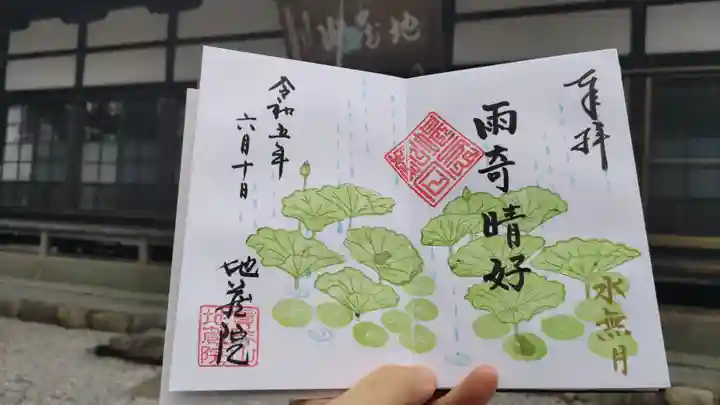 奉拝
雨奇晴好
水無月
令和五年
六月十日
地蔵院
地蔵院